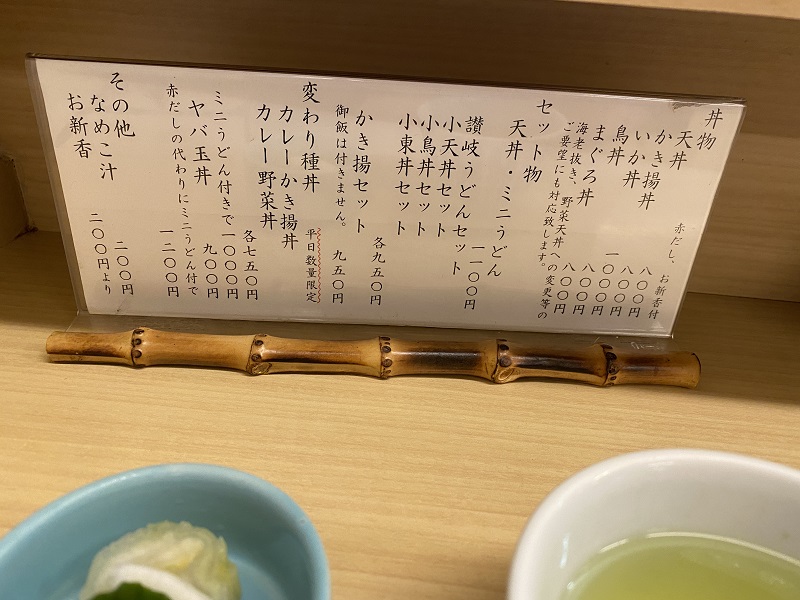 丼物
赤だし、お新香付
天丼
かき揚丼 八〇〇円
いか丼 八〇〇円
鳥丼 八〇〇円
まぐろ丼 一〇〇〇円
海老抜き、野菜天丼への変更等の
ご要望にも対応致します。
セット物
天丼・ミニうどん
讃岐うどんセット 一一〇〇円
小天丼セット
小鳥丼セット
小東丼セット 各九五〇円
かき揚セット 九五〇円
御飯は付きません。
変わり種丼 平日数量限定
カレーかき揚丼
カレー野菜丼 各七五〇円
ミニうどん付きで 一〇〇〇円
ヤバ玉丼 九〇〇円
赤だしの代わりにミニうどん付で
一二〇〇円
その他
なめこ汁 二〇〇円
お新香 二〇〇円より